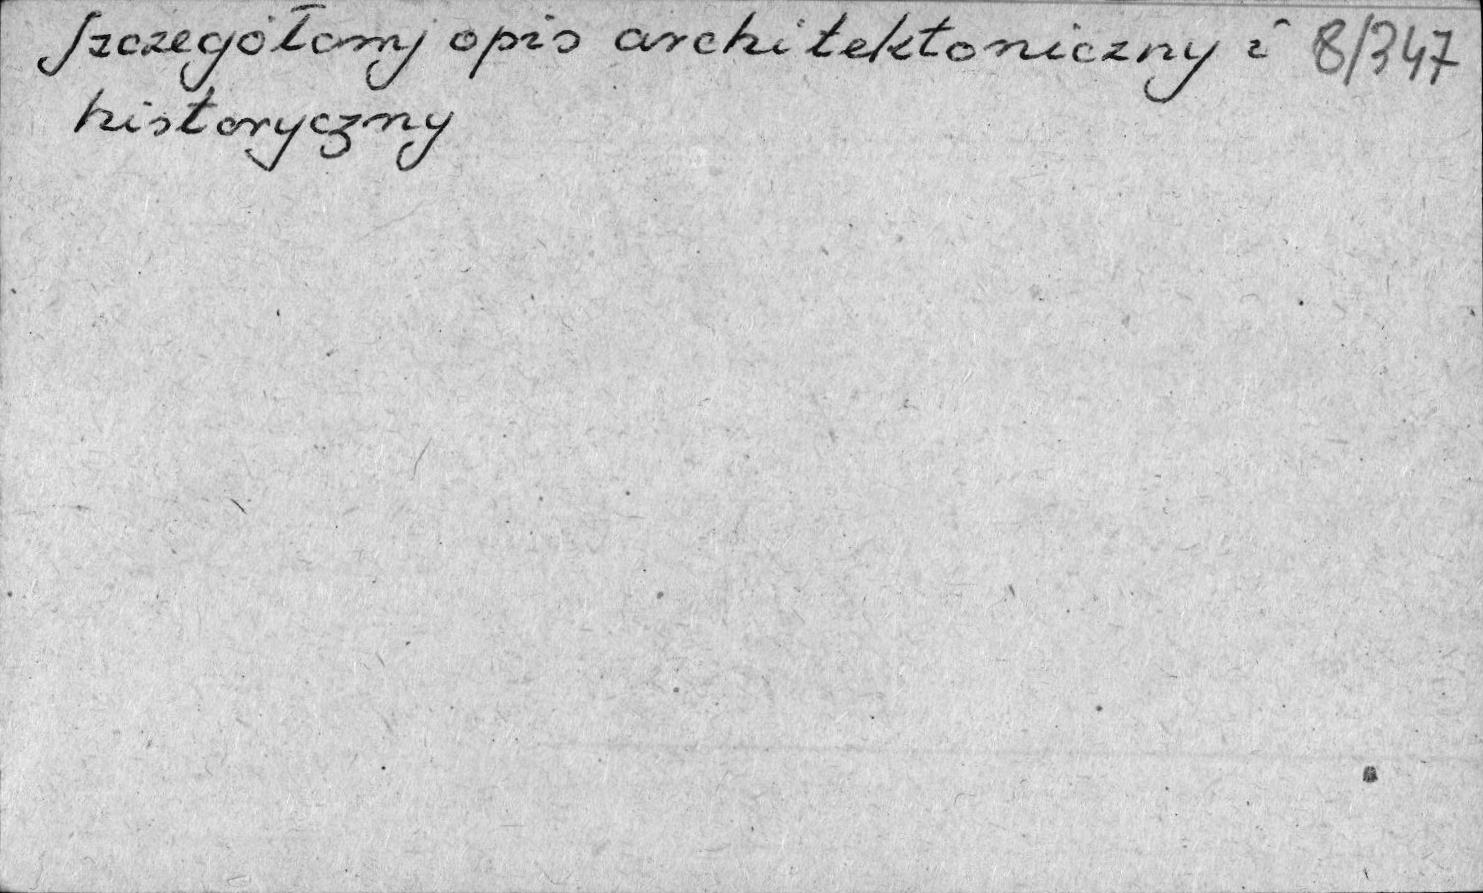 Szczegółowy opis architektoniczny i 8/347
historyczny